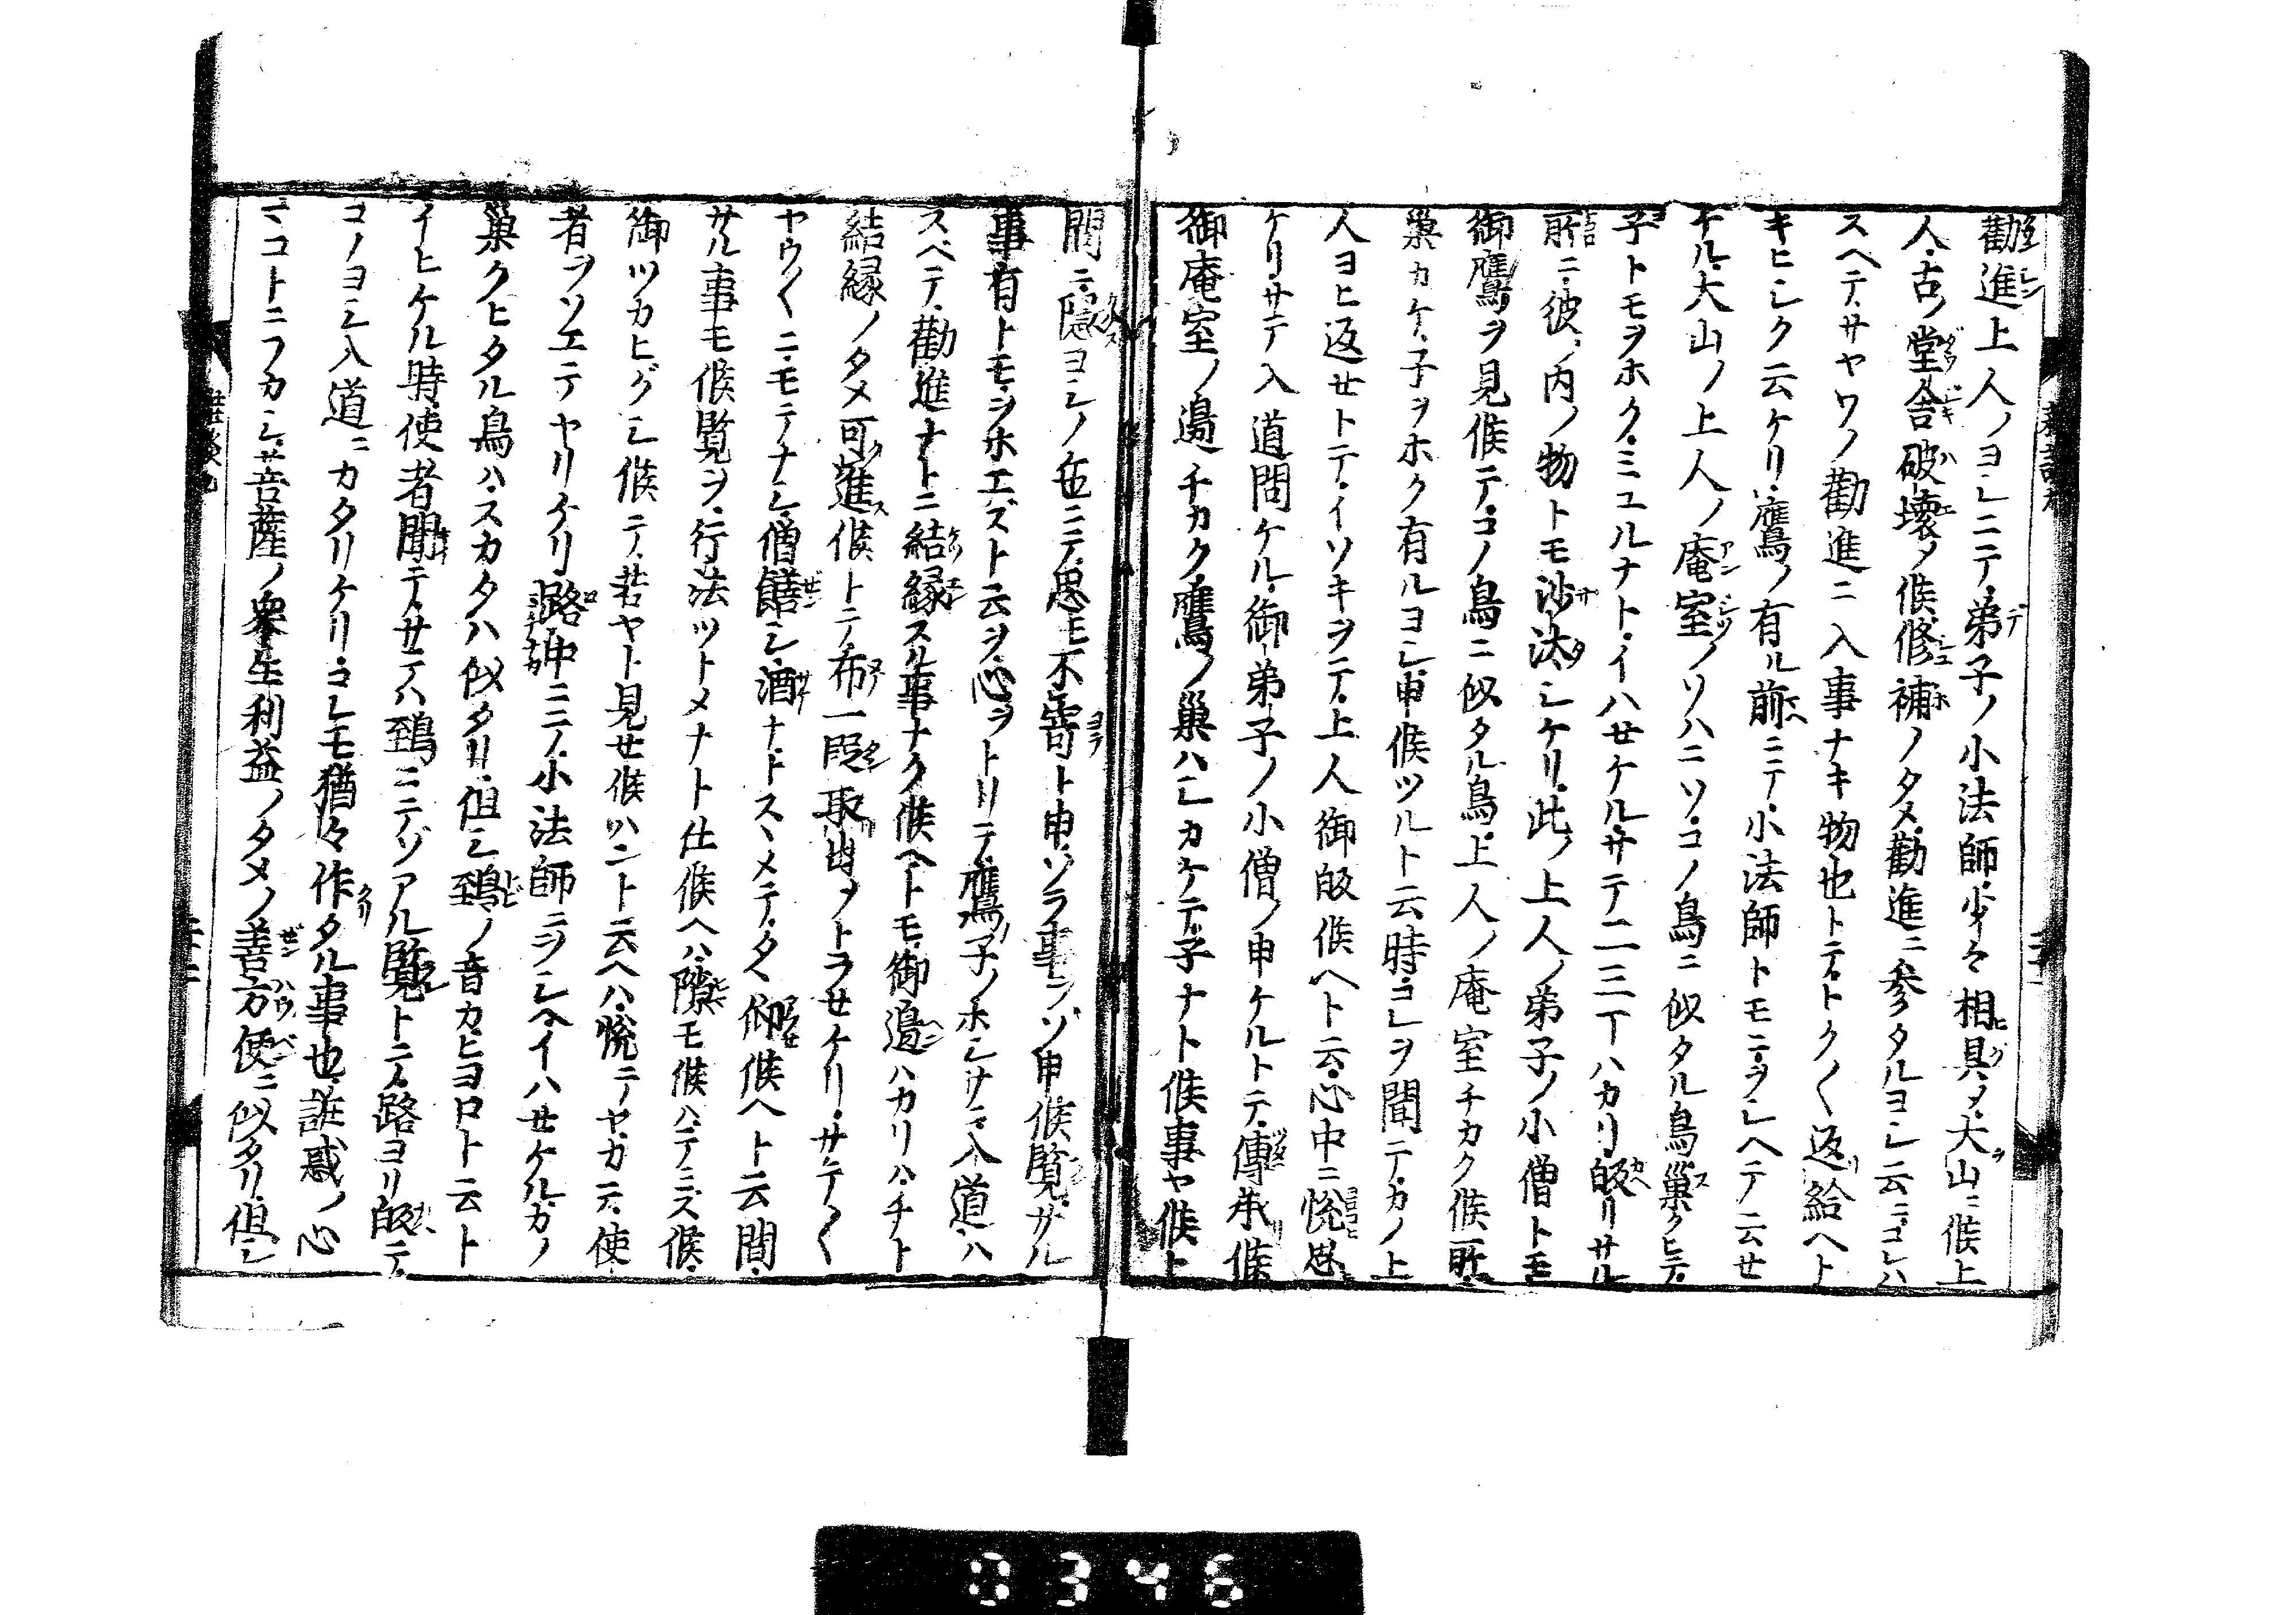 勸進上人ノヨシニテ弟子ノ小法師少々相具メ大山ニ候上
人古ノ堂舎破壊メ候修補ノタメ勸進ニ參タルヨシ云ニコレハ
スヘテサヤウノ勸進ニ入事ナキ物也トテトク〱返給ヘト
キヒシク云ケリ鷹ノ有ル前ニテ小法師トモニヲシヘテ云セ
ケル大山ノ上人ノ庵室ノソハニソコノ鳥ニ似タル鳥巣クヒテ
子トモヲホクミユルナトイハセケルサテ二三丁ハカリ皈リサル
所ニ彼内ノ物トモ沙汰シケリ此ノ上人ノ弟子ノ小僧トモ
御鷹ヲ見候テコノ鳥ニ似タル鳥上人ノ庵室チカク候所ニ
巣カケ子ヲホク有ルヨシ申候ツルト云時コレヲ聞テカノ上
人ヨヒ返セトテイソキヲテ上人御皈候ヘト云心中ニ悦思
ケリサテ入道問ケル御弟子ノ小僧ノ申ケルトテ傳承候
御庵室ノ邉チカク鷹ノ巣ハシカケテ子ナト候事ヤ候ト
間ニ隠ヨシノ伍ニテ思モ不寄ト申ソラ事ラゾ申候覧サル
事有トモヲホエズト云ヲ心ヲトリテ鷹子ノホシサニ入道ハ
スベテ勸進ナトニ結縁スル事ナク候ヘトモ御邉ハカリハチト
結縁ノタメ可進候トテ布一段取出メトラセケリサテ〱
ヤウ〱ニモテナシ僧膳シ酒ナトスヽメテタヽ仰候ヘト云間
サル事モ候覧ヲ行法ツトメナト仕候ヘハ隙モ候ハテミズ候
御ツカヒグシ候テ若ヤト見セ候ハント云ヘハ悦テヤカテ使
者ヲソエテヤリケリ路中ニテ小法師ニヲシヘイハセケルカノ
巣クヒタル鳥ハスカタハ似タリ但シ鵄ノ音カヒヨロト云ト
イヒケル時使者聞テサテハ鵄ニテゾアル覧トテ路ヨリ皈テ
コノヨシ入道ニカタリケリコレモ猶々作タル事也誑惑ノ心
マコトニフカシ菩薩ノ衆生利益ノタメノ善方便ニ似タリ但シ